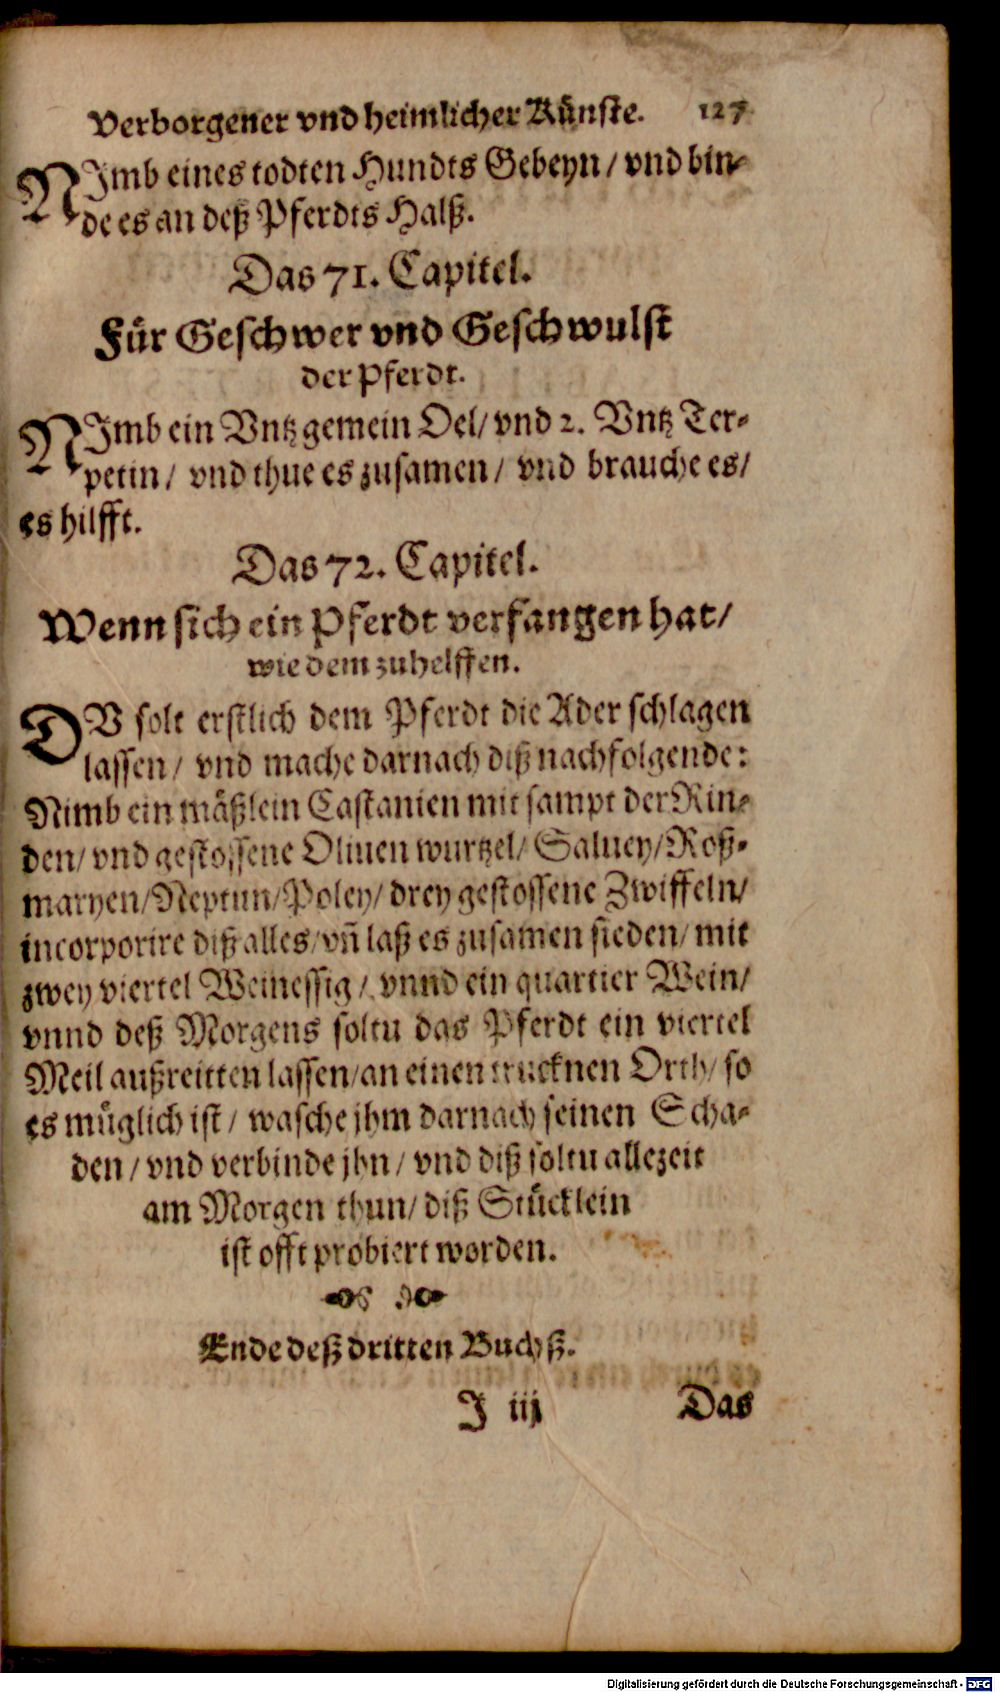 Verborgener vnd heimlicher Künste. 127
NImb eines todten Hundts Gebeyn / vnd bin-
de es an deß Pferdts Halß.
Das 71. Capitel.
Für Geschwer vnd Geschwulst
der Pferdt.
NImb ein Vntz gemein Oel / vnd 2. Vntz Ter-
petin / vnd thue es zusamen / vnd brauche es /
es hilfft.
Das 72. Capitel.
Wenn sich ein Pferdt verfangen hat /
wie dem zuhelffen.
DV solt erstlich dem Pferdt die Ader schlagen
lassen / vnd mache darnach diß nachfolgende:
Nimb ein mäßlein Castanien mit sampt der Rin-
den / vnd gestossene Oliuen wurtzel / Saluey / Roß-
maryen / Neptun / Poley / drey gestossene Zwiffeln /
incorporire diß alles / vñ laß es zusamen sieden / mit
zwey viertel Weinessig / vnnd ein quartier Wein /
vnnd deß Morgens soltu das Pferdt ein viertel
Meil außreitten lassen / an einen trucknen Orth / so
es müglich ist / wasche jhm darnach seinen Scha-
den / vnd verbinde jhn / vnd diß soltu allezeit
am Morgen thun / diß Stücklein
ist offt probiert worden.
Ende deß dritten Buchß.
I iij Das
Digitalisierung gefördert durch die Deutsche Forschungsgemeinschaft - DFG